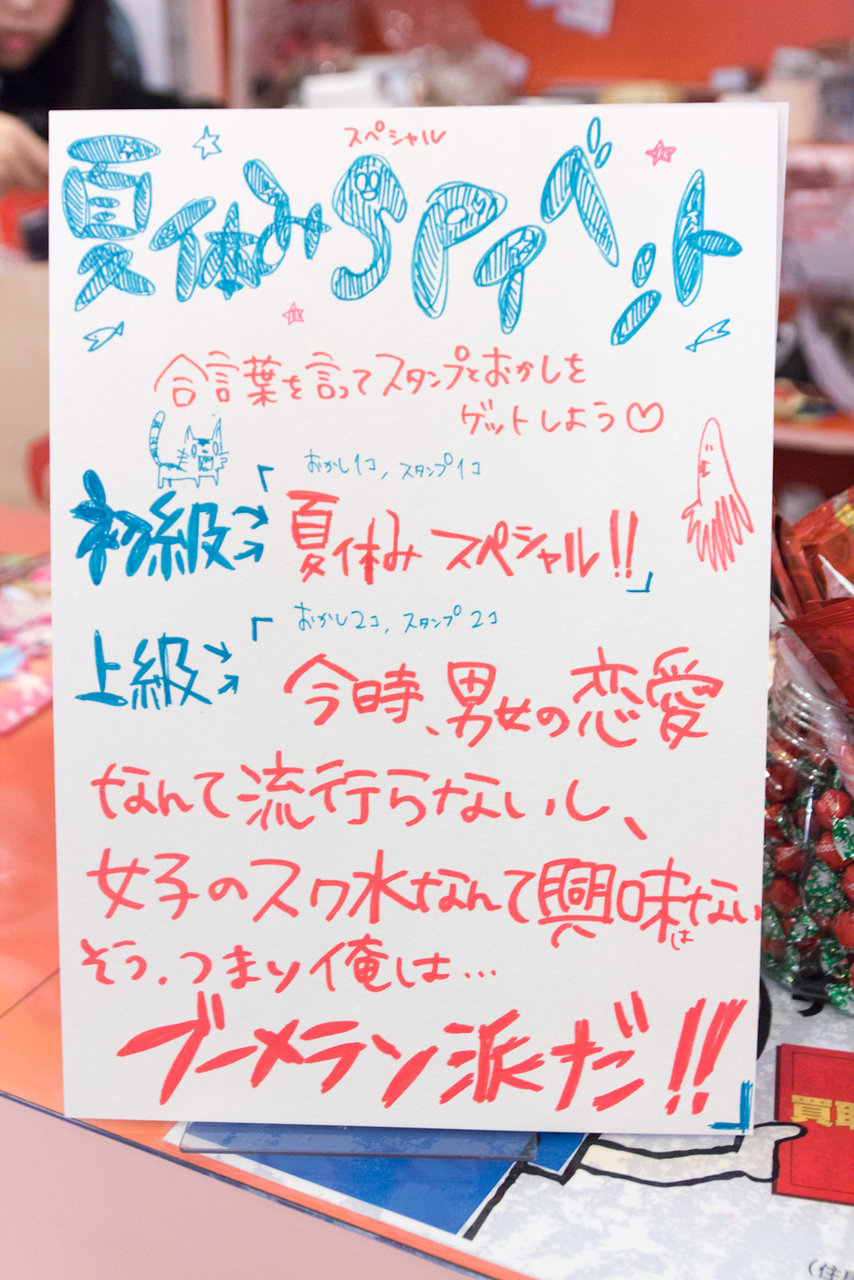 スペシャル
夏休みSPイベント
合言葉を言ってスタンプとおかしを
ゲットしよう♡
おかし1コ,スタンプ1コ
初級→「夏休みスペシャル!!」
おかし2コ,スタンプ2コ
上級→「今時、男女の恋愛
なんて流行らないし、
女子のスク水なんて興味はない
そう、つまり俺は…
ブーメラン派だ!!」
買取
(住